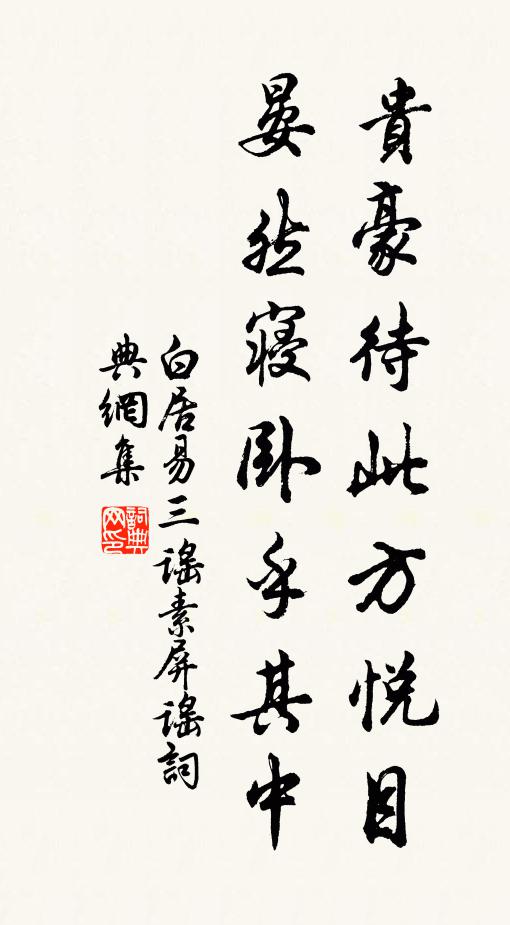 貴豪待此方悅目
晏然寢卧乎其中
白居易三謠素屏謠詞
典網集
詞典网印